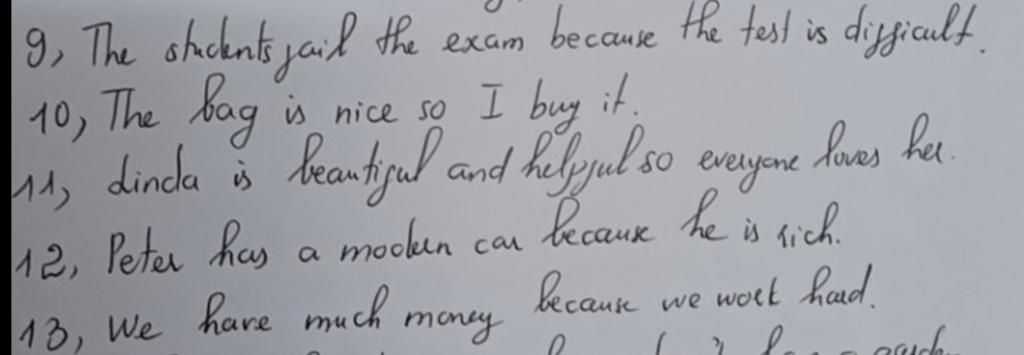 9, The students fail the exam because the test is difficult.
10, The bag is nice so I buy it.
11, Linda is beautiful and helpful so everyone loves her.
12, Peter has a modern car because he is rich.
13, We have much money because we work hard.